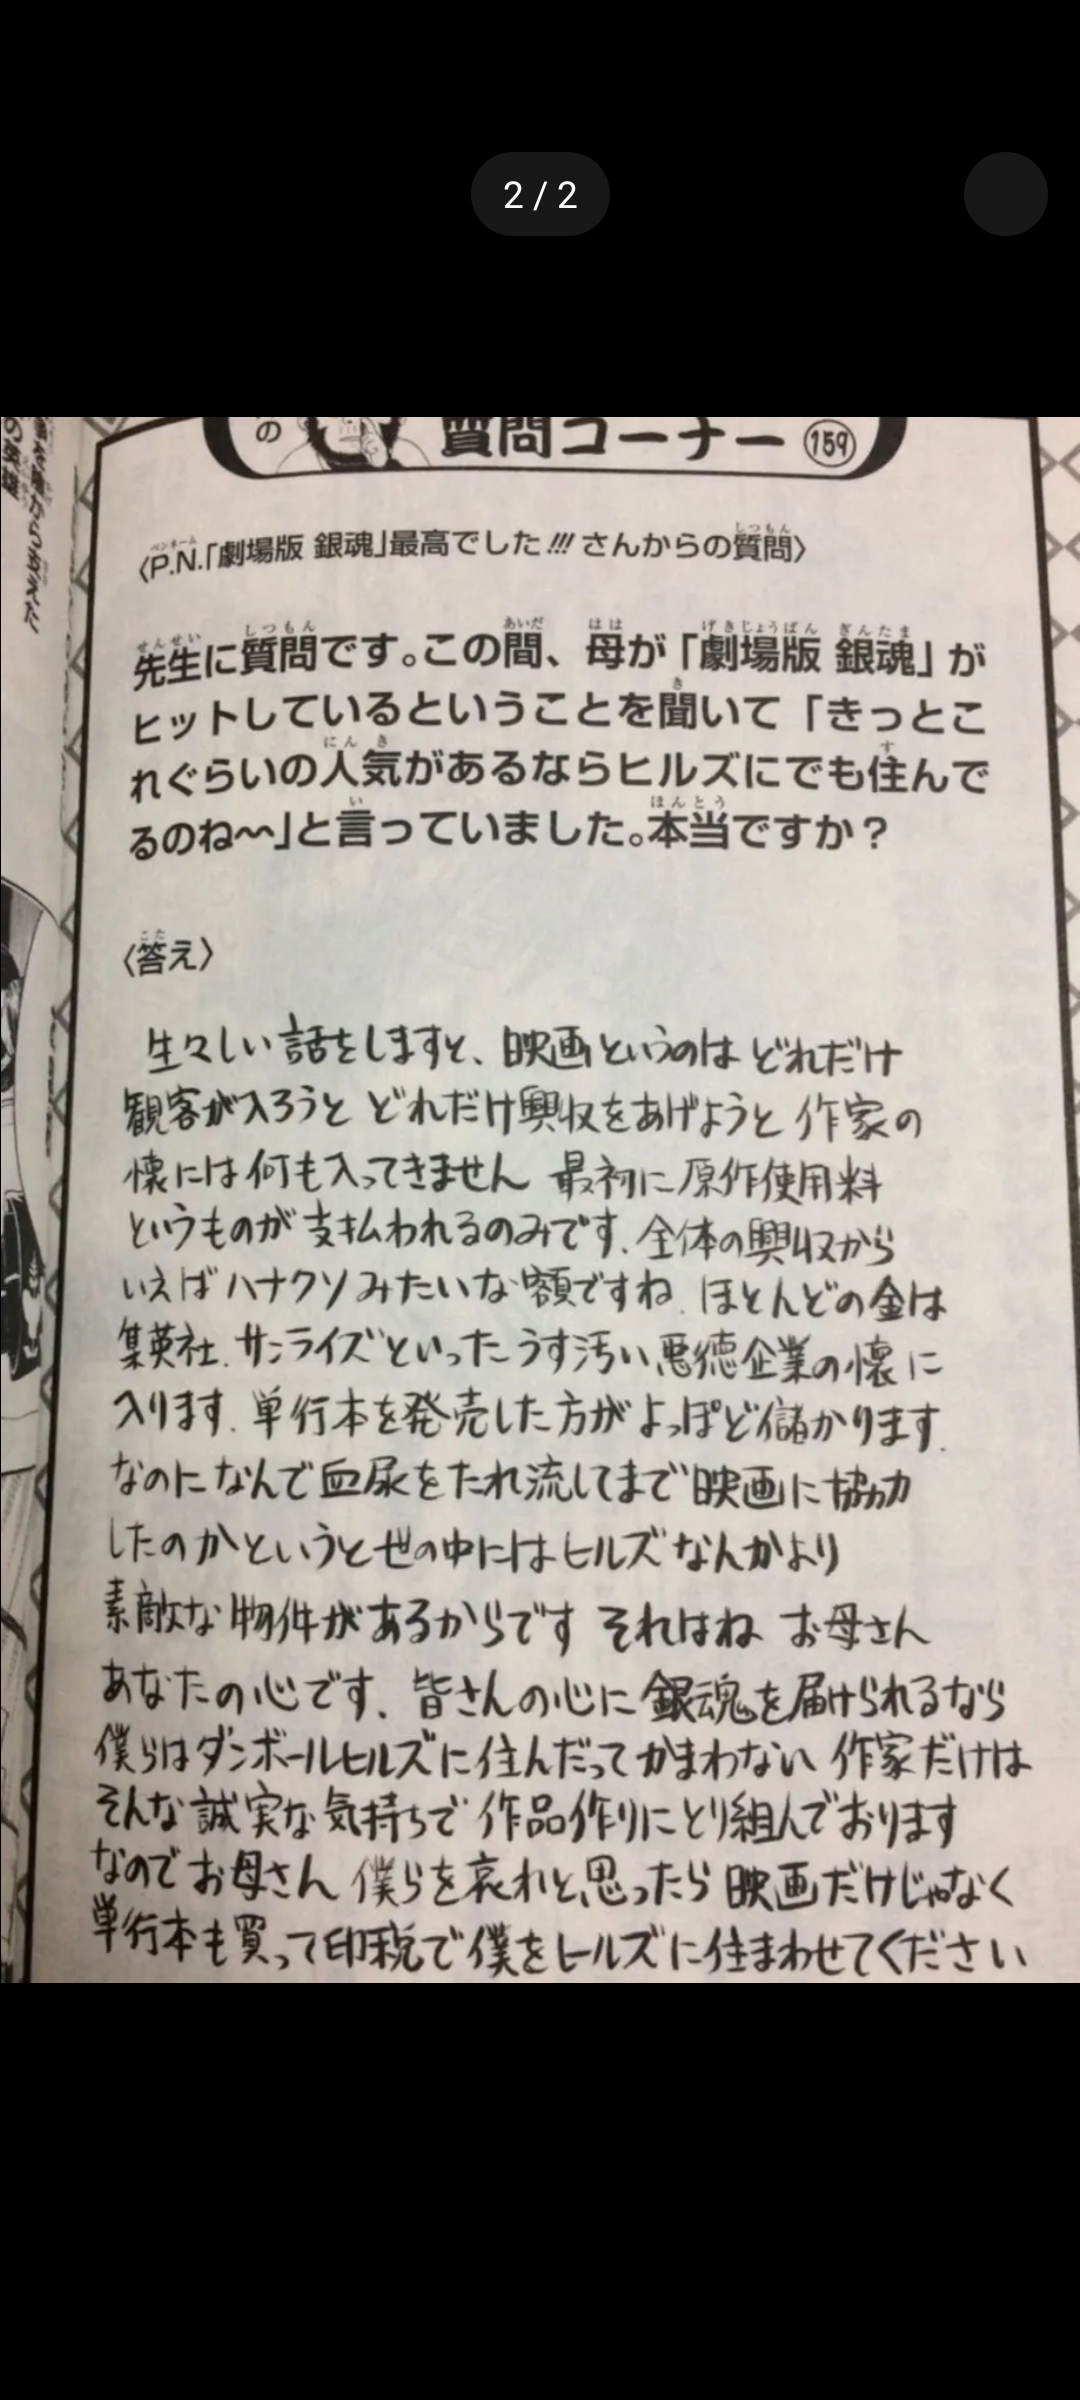 2 / 2
の 質問コーナー 159
〈P.N.「劇場版 銀魂」最高でした!!! さんからの質問〉
先生に質問です。この間、母が「劇場版 銀魂」が
ヒットしているということを聞いて「きっとこ
れぐらいの人気があるならヒルズにでも住んで
るのね〜〜」と言っていました。本当ですか？
〈答え〉
生々しい話をしますと、映画というのは どれだけ
観客が入ろうと どれだけ興収をあげようと 作家の
懐には何も入ってきません 最初に原作使用料
というものが支払われるのみです. 全体の興収から
いえばハナクソみたいな額ですね. ほとんどの金は
集英社. サンライズといったうす汚い悪徳企業の懐に
入ります. 単行本を発売した方がよっぽど儲かります.
なのになんで血尿をたれ流してまで映画に協力
したのかというと世の中にはヒルズなんかより
素敵な物件があるからです それはね お母さん
あなたの心です. 皆さんの心に銀魂を届けられるなら
僕らはダンボールヒルズに住んだってかまわない 作家だけは
そんな誠実な気持ちで作品作りにとり組んでおります
なのでお母さん 僕らを哀れと思ったら映画だけじゃなく
単行本も買って印税で僕をヒルズに住まわせてください